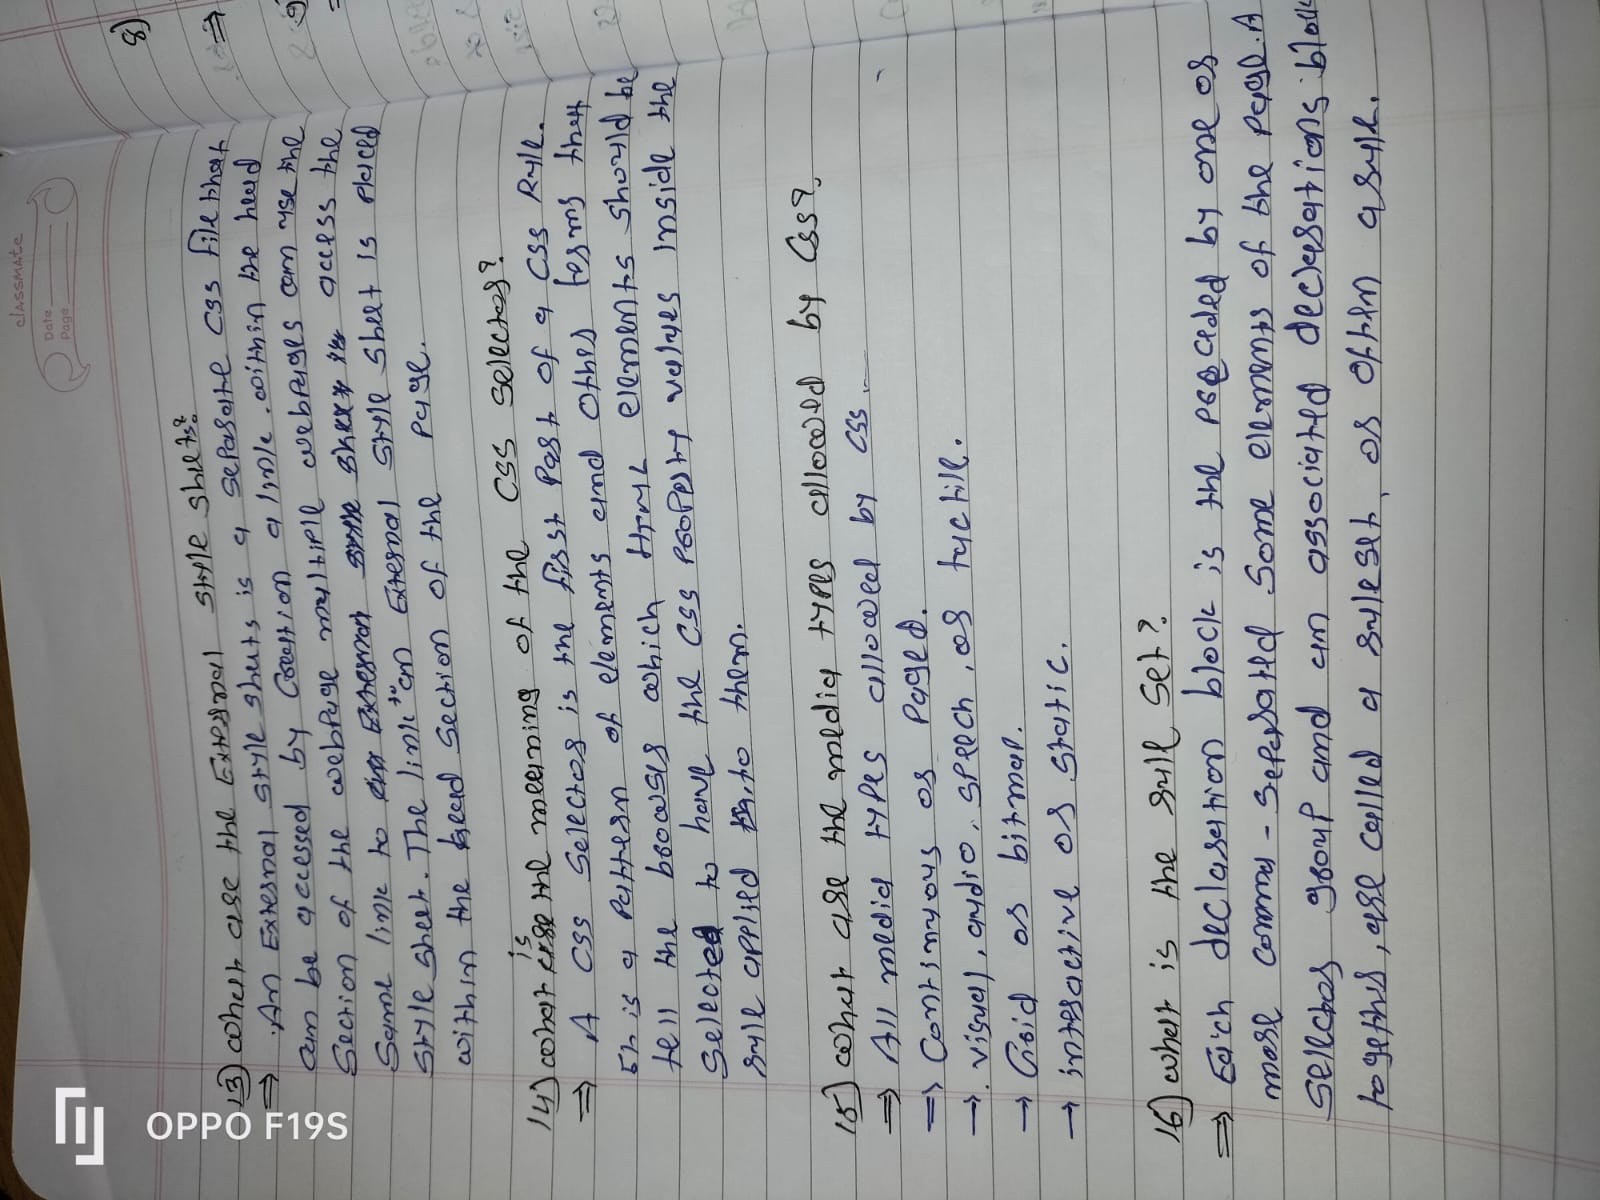 classmate
Date
Page
13) what are the External style sheets?
⇒ An External style sheets is a separate CSS file that
can be accessed by Creation a link within the head
Section of the webpage multiple webpages can use the
Same link to External access the
style sheet. The link "an External style sheet is placed
within the head Section of the page.
14) what is the meaning of the CSS Selector?
⇒ A CSS Selector is the first Part of a CSS Rule.
is a Pattern of elements and other terms that
tell the browser which HTML elements should be
Selected to have the CSS Property values inside the
rule applied to them.
15) what are the media types allowed by CSS?
⇒ All media types allowed by CSS
⇒ Continuous or Paged.
→ visual, audio, speech, or tactile.
→ Grid or bitmap.
→ interactive or static.
16) what is the rule Set?
⇒ Each declaration block is the preceded by one or
more comma-seperated Some elements of the page. A
Selector group and an associated declarations block
together, are called a rule set, or often a rule.
8)
⇒
9)
OPPO F19S